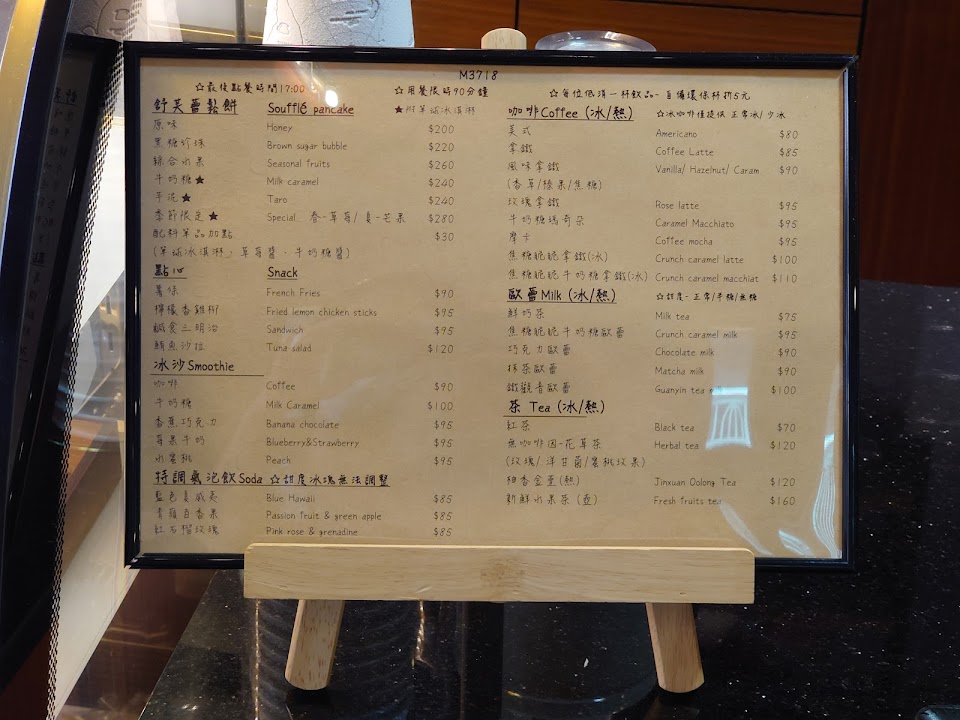 M3718
☆最後點餐時間17:00
☆用餐限時90分鐘
☆每位低消一杯飲品-自備環保杯折5元
舒芙蕾鬆餅 Soufflé pancake ★附單球冰淇淋
原味 Honey $200
黑糖珍珠 Brown sugar bubble $220
綜合水果 Seasonal fruits $260
牛奶糖★ Milk caramel $240
芋泥★ Taro $240
季節限定★ Special 春-草莓/夏-芒果 $280
配料單品加點 $30
(單球冰淇淋、草莓醬、牛奶糖醬)
點心 Snack
薯條 French Fries $90
檸檬香雞柳 Fried lemon chicken sticks $95
鹹食三明治 Sandwich $95
鮪魚沙拉 Tuna salad $120
冰沙Smoothie
咖啡 Coffee $90
牛奶糖 Milk Caramel $100
香蕉巧克力 Banana chocolate $95
莓果牛奶 Blueberry&Strawberry $95
水蜜桃 Peach $95
特調氣泡飲Soda ☆甜度冰塊無法調整
藍色夏威夷 Blue Hawaii $85
青蘋百香果 Passion fruit & green apple $85
紅石榴玫瑰 Pink rose & grenadine $85
咖啡Coffee (冰/熱) ☆冰咖啡僅提供 正常冰/少冰
美式 Americano $80
拿鐵 Coffee Latte $85
風味拿鐵 Vanilla/ Hazelnut/ Caram $90
(香草/榛果/焦糖)
玫瑰拿鐵 Rose latte $95
牛奶糖瑪奇朵 Caramel Macchiato $95
摩卡 Coffee mocha $95
焦糖脆脆拿鐵(冰) Crunch caramel latte $100
焦糖脆脆牛奶糖拿鐵(冰) Crunch caramel macchiat $110
歐蕾Milk (冰/熱) ☆甜度-正常/半糖/無糖
鮮奶茶 Milk tea $75
焦糖脆脆牛奶糖歐蕾 Crunch caramel milk $95
巧克力歐蕾 Chocolate milk $90
抹茶歐蕾 Matcha milk $90
鐵觀音歐蕾 Guanyin tea milk $100
茶 Tea (冰/熱)
紅茶 Black tea $70
無咖啡因-花草茶 Herbal tea $120
(玫瑰/洋甘菊/蜜桃玫果)
柑香金萱(熱) Jinxuan Oolong Tea $120
新鮮水果茶(壺) Fresh fruits tea $160